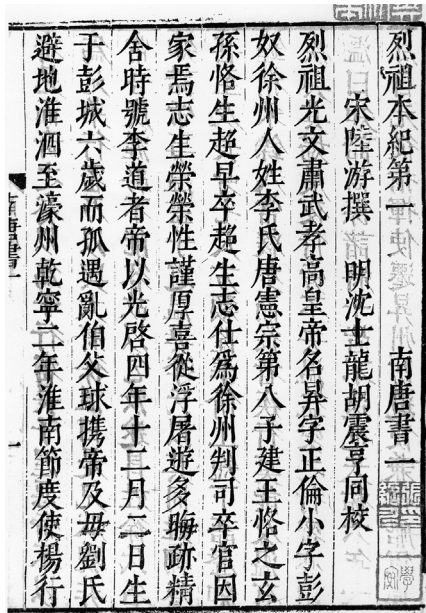 烈祖本紀第一 南唐書一
宋陸游撰 明沈士龍胡震亨同校
烈祖光文肅武孝高皇帝名昇字正倫小字彭
奴徐州人姓李氏唐憲宗第八子建王恪之玄
孫恪生超早卒超生志仕爲徐州判司卒官因
家焉志生榮榮性謹厚喜從浮屠遊多晦跡精
舍時號李道者帝以光啓四年十二月二日生
于彭城六歲而孤遇亂伯父球攜帝及毋劉氏
避地淮泗至濠州乾寧二年淮南節度使楊行
南唐書一
一